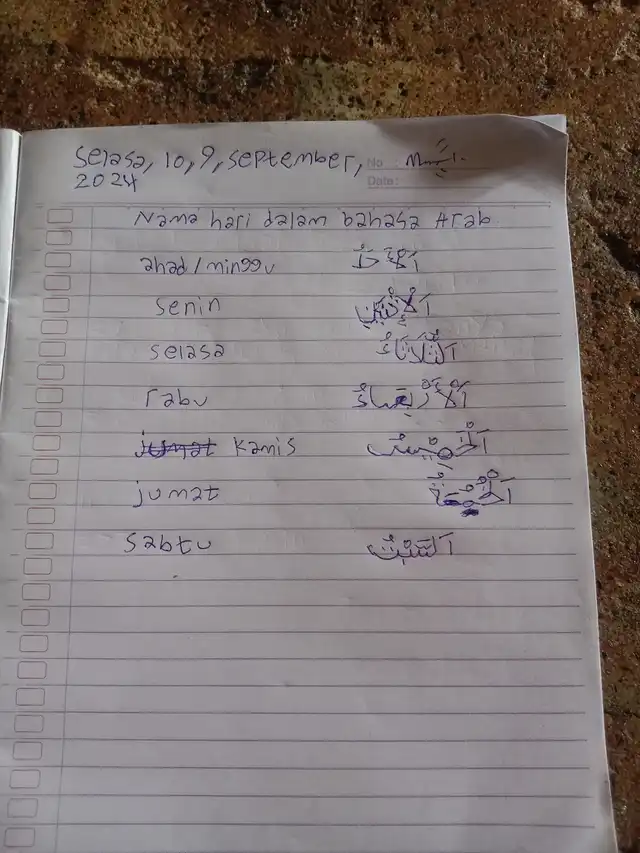 Selasa, 10, 9, September,
2024
No :
Date :
Nama hari dalam bahasa Arab
ahad / minggu اَلْأَحَدُ
senin
selasa اَلثُّلَاثَاءُ
rabu اَلْأَرْبِعَاءُ
jumat kamis
jumat
sabtu اَلسَّبْتُ